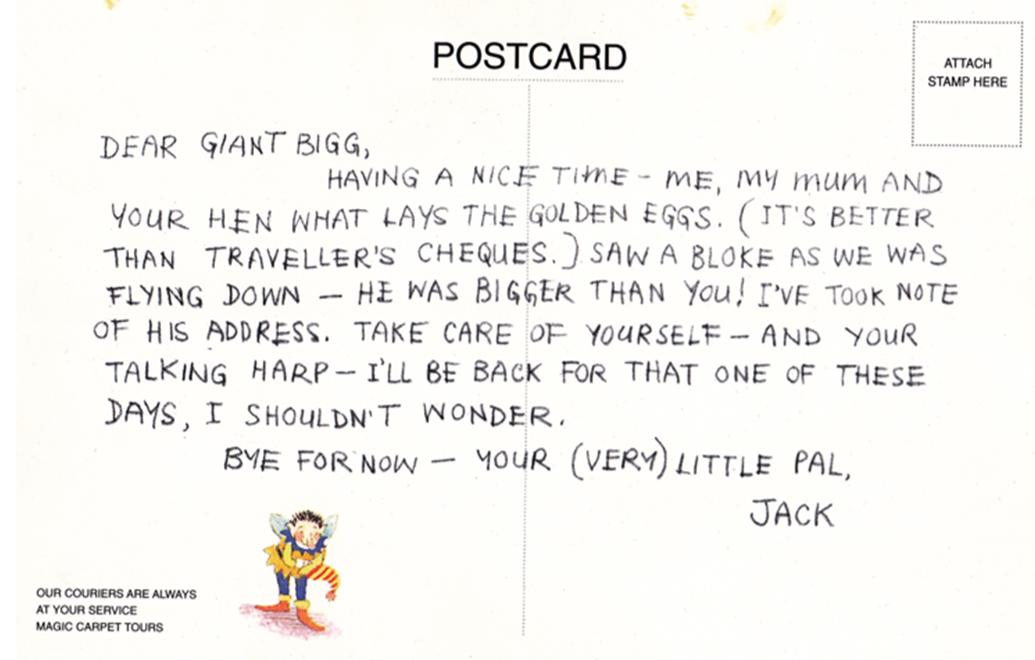 POSTCARD
ATTACH
STAMP HERE
DEAR GIANT BIGG,
HAVING A NICE TIME - ME, MY MUM AND
YOUR HEN WHAT LAYS THE GOLDEN EGGS. (IT'S BETTER
THAN TRAVELLER'S CHEQUES.) SAW A BLOKE AS WE WAS
FLYING DOWN — HE WAS BIGGER THAN YOU! I'VE TOOK NOTE
OF HIS ADDRESS. TAKE CARE OF YOURSELF — AND YOUR
TALKING HARP — I'LL BE BACK FOR THAT ONE OF THESE
DAYS, I SHOULDN'T WONDER.
BYE FOR NOW — YOUR (VERY) LITTLE PAL,
JACK
OUR COURIERS ARE ALWAYS
AT YOUR SERVICE
MAGIC CARPET TOURS